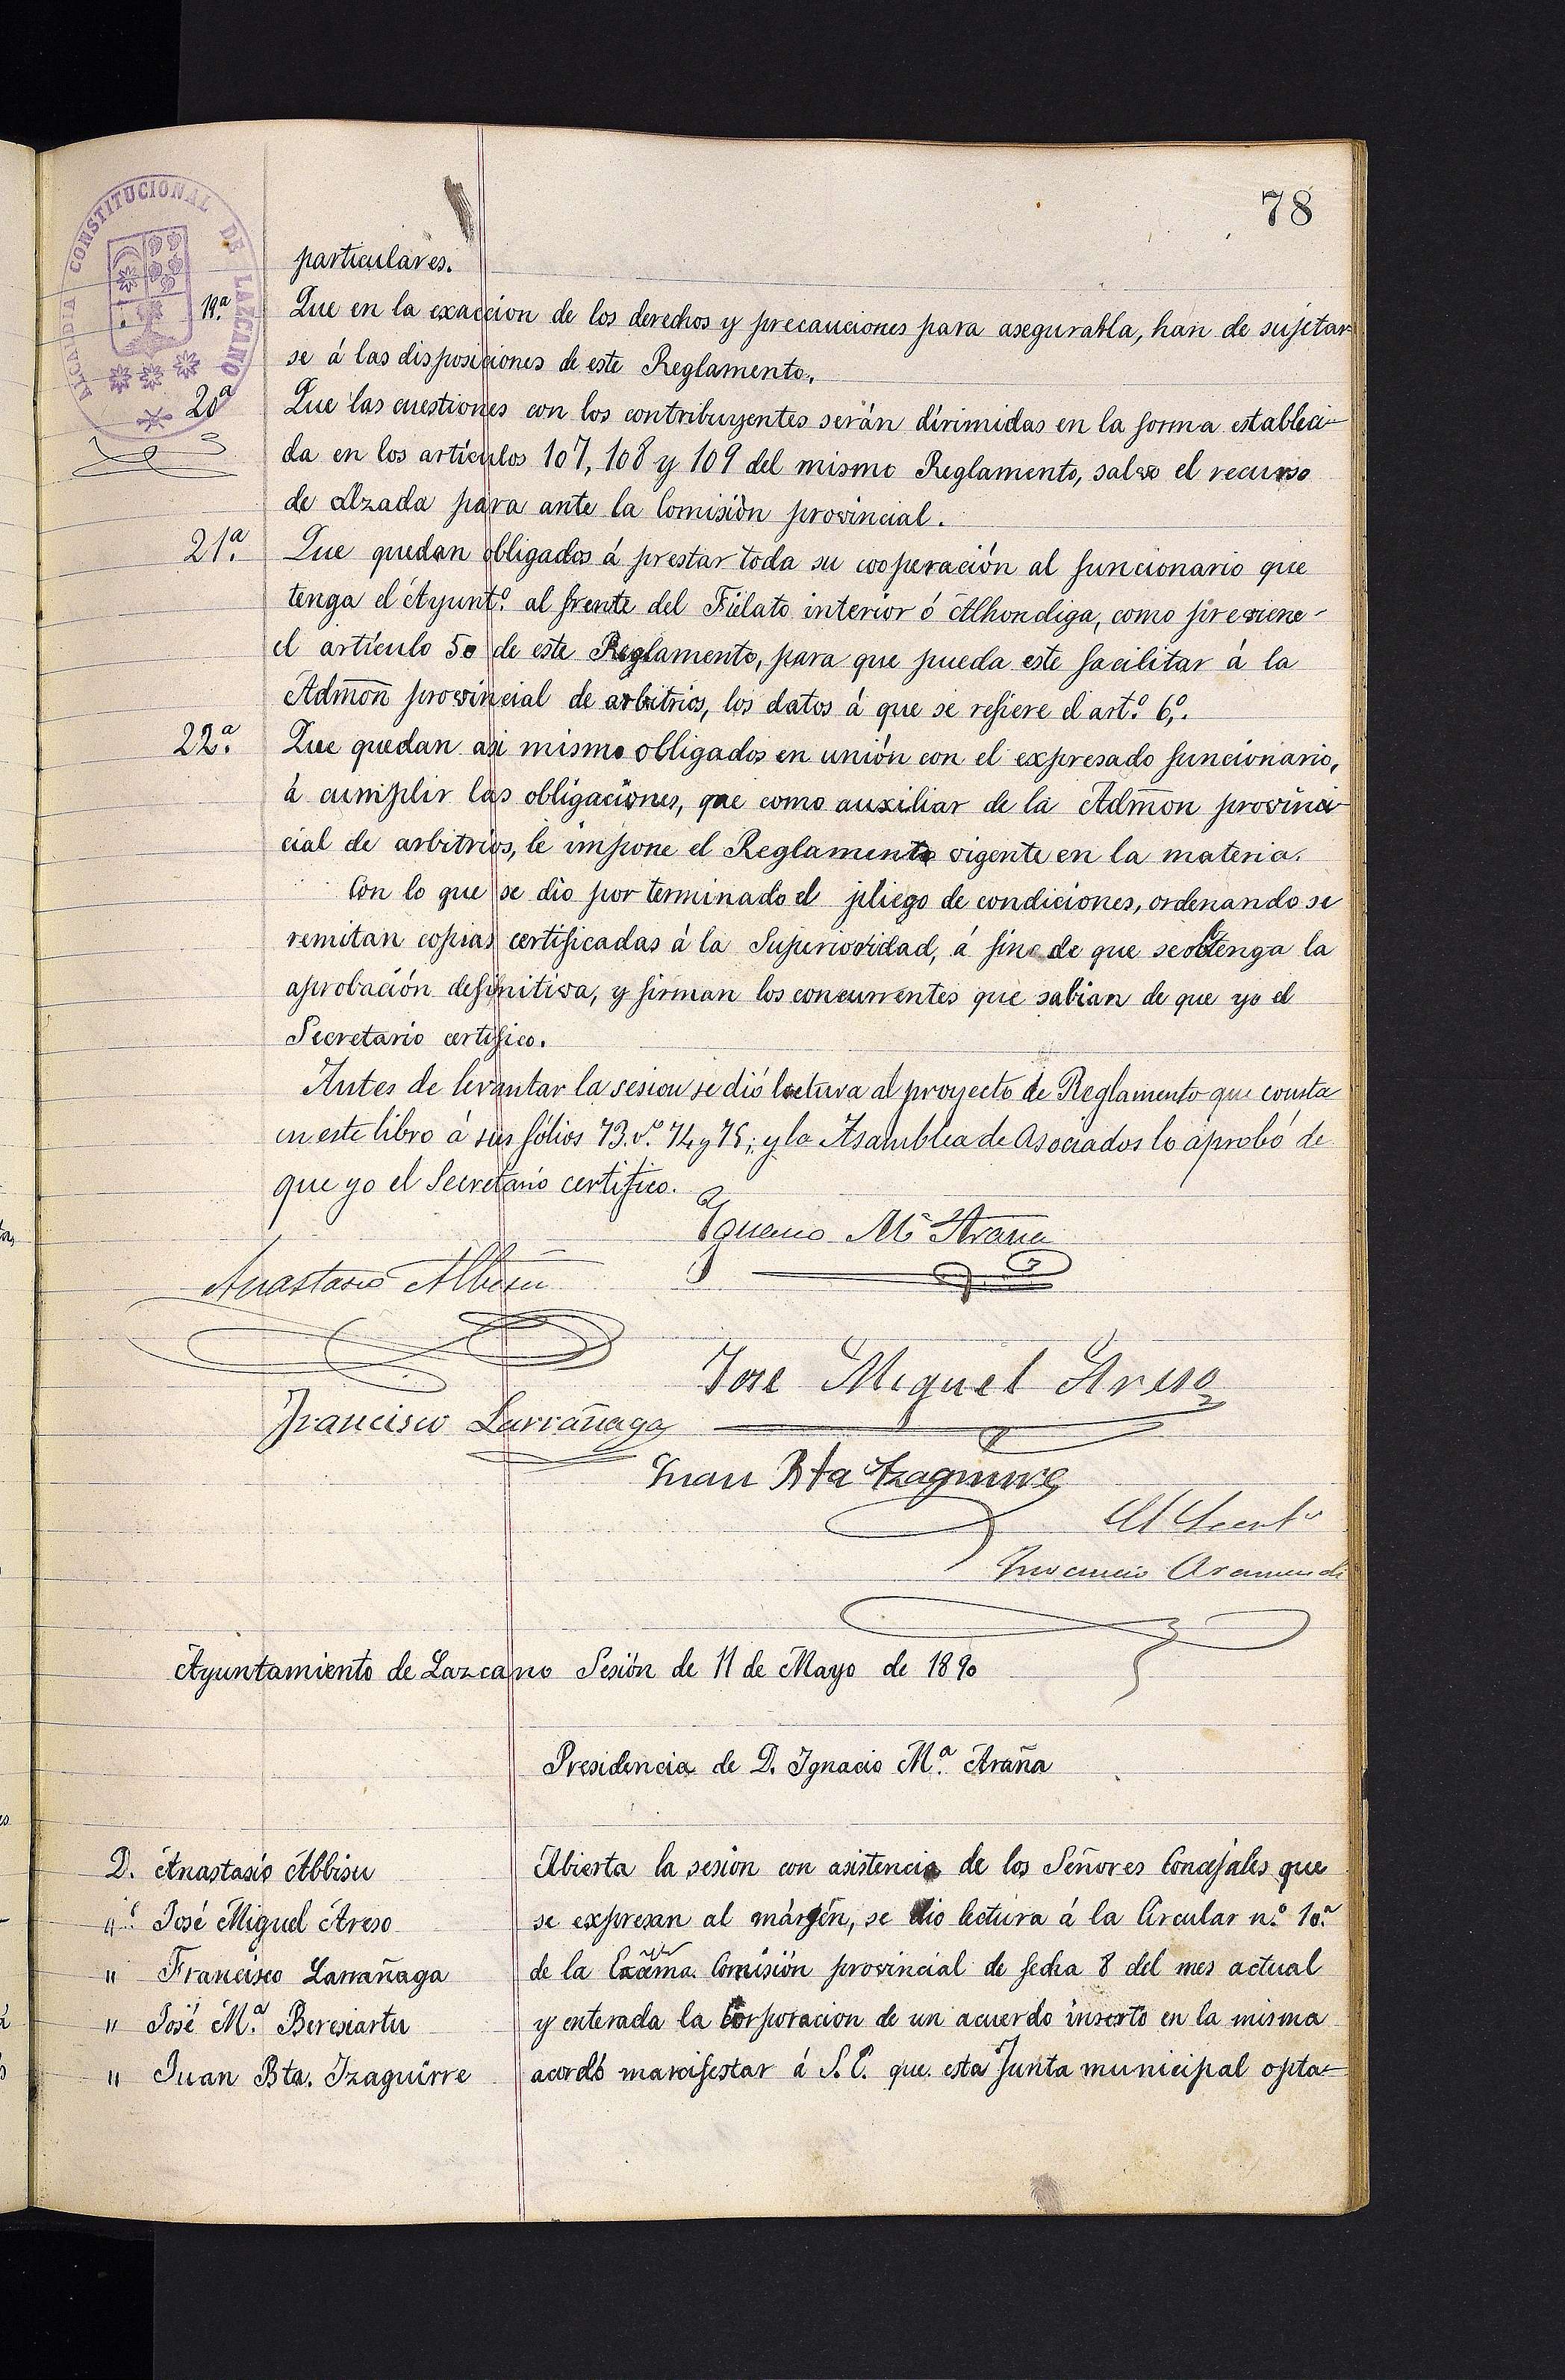 78
ALCALDIA CONSTITUCIONAL DE LAZCANO
particulares.
19ª. Que en la exaccion de los derechos y precauciones para asegurarla, han de sujetar
se á las disposiciones de este Reglamento.
20ª Que las cuestiones con los contribuyentes serán dirimidas en la forma estableci-
da en los artículos 107, 108 y 109 del mismo Reglamento, salvo el recurso
de alzada para ante la Comisión provincial.
21ª. Que quedan obligados á prestar toda su cooperación al funcionario que
tenga el Ayuntº. al frente del Fielato interior ó Alhondiga, como previene-
el artículo 50 de este Reglamento, para que pueda este facilitar á la
Admōn provincial de arbitrios, los datos á que se refiere el artº. 6º.
22ª. Que quedan asi mismo obligados en unión con el expresado funcionario,
á cumplir las obligaciones, que como auxiliar de la Admōn provinci-
cial de arbitrios, le impone el Reglamento vigente en la materia.
Con lo que se dio por terminado el pliego de condiciones, ordenando se
remitan copias certificadas á la Superioridad, á fin de que se obtenga la
aprobación definitiva, y firman los concurrentes que sabian de que yo el
Secretario certifico.
Antes de levantar la sesion se dió lectura al proyecto de Reglamento que consta
en este libro á sus fólios 73.vº. 74 y 75; y la Asamblea de Asociados lo aprobó de
que yo el Secretario certifico.
Ignacio Mª Araña
Anastasio Albisu
José Miguel Areso
Francisco Larrañaga
Juan Bta Izaguirre
El Secretº
Aramendi
Ayuntamiento de Lazcano Sesión de 11 de Mayo de 1890
Presidencia de D. Ignacio Mª. Araña
D. Anastasio Albisu
" José Miguel Areso
" Francisco Larrañaga
" José Mª. Beresiartu
" Juan Bta. Izaguirre
Abierta la sesion con asistencia de los Señores Concejales que
se expresan al márgen, se dio lectura á la Circular nº. 10ª
de la Excma. Comisión provincial de fecha 8 del mes actual
y enterada la Corporacion de un acuerdo inserto en la misma
acordó manifestar á S.E. que esta Junta municipal opta-